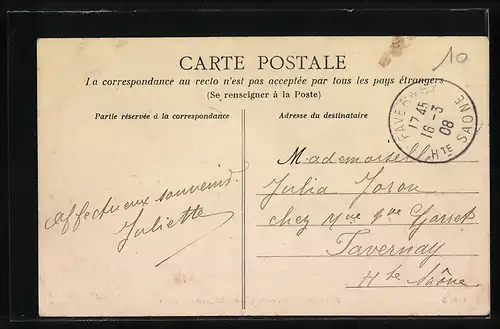 10
CARTE POSTALE
La correspondance au recto n'est pas acceptée par tous les pays étrangers
(Se renseigner à la Poste)
Partie réservée à la correspondance
Adresse du destinataire
FAVERNEY
17 45
16 -3
08
Hte SAONE
Affectueux souvenirs.
Juliette
Mademoiselle
Julia
chez Mme Vve
Faverney
Hte Saône